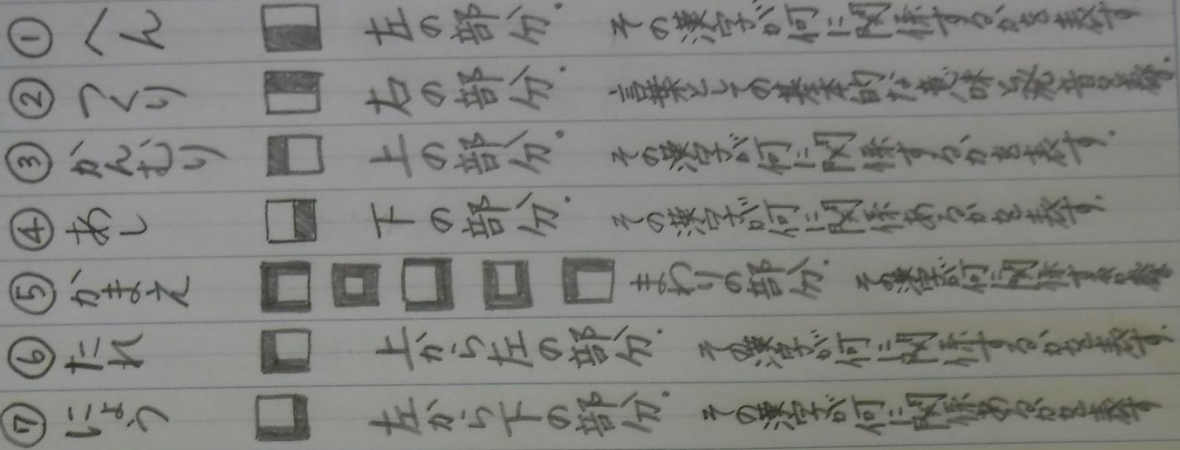 ① へん 左の部分. その漢字が何に関係するかを表す
② つくり 右の部分. 言葉としての基本的な意味や発音を表す.
③ かんむり 上の部分. その漢字が何に関係するかを表す.
④ あし 下の部分. その漢字が何に関係あるかを表す.
⑤ かまえ まわりの部分. その漢字が何に関係するか表す
⑥ たれ 上から左の部分. その漢字が何に関係するかを表す.
⑦ にょう 左から下の部分. その漢字が何に関係あるかを表す